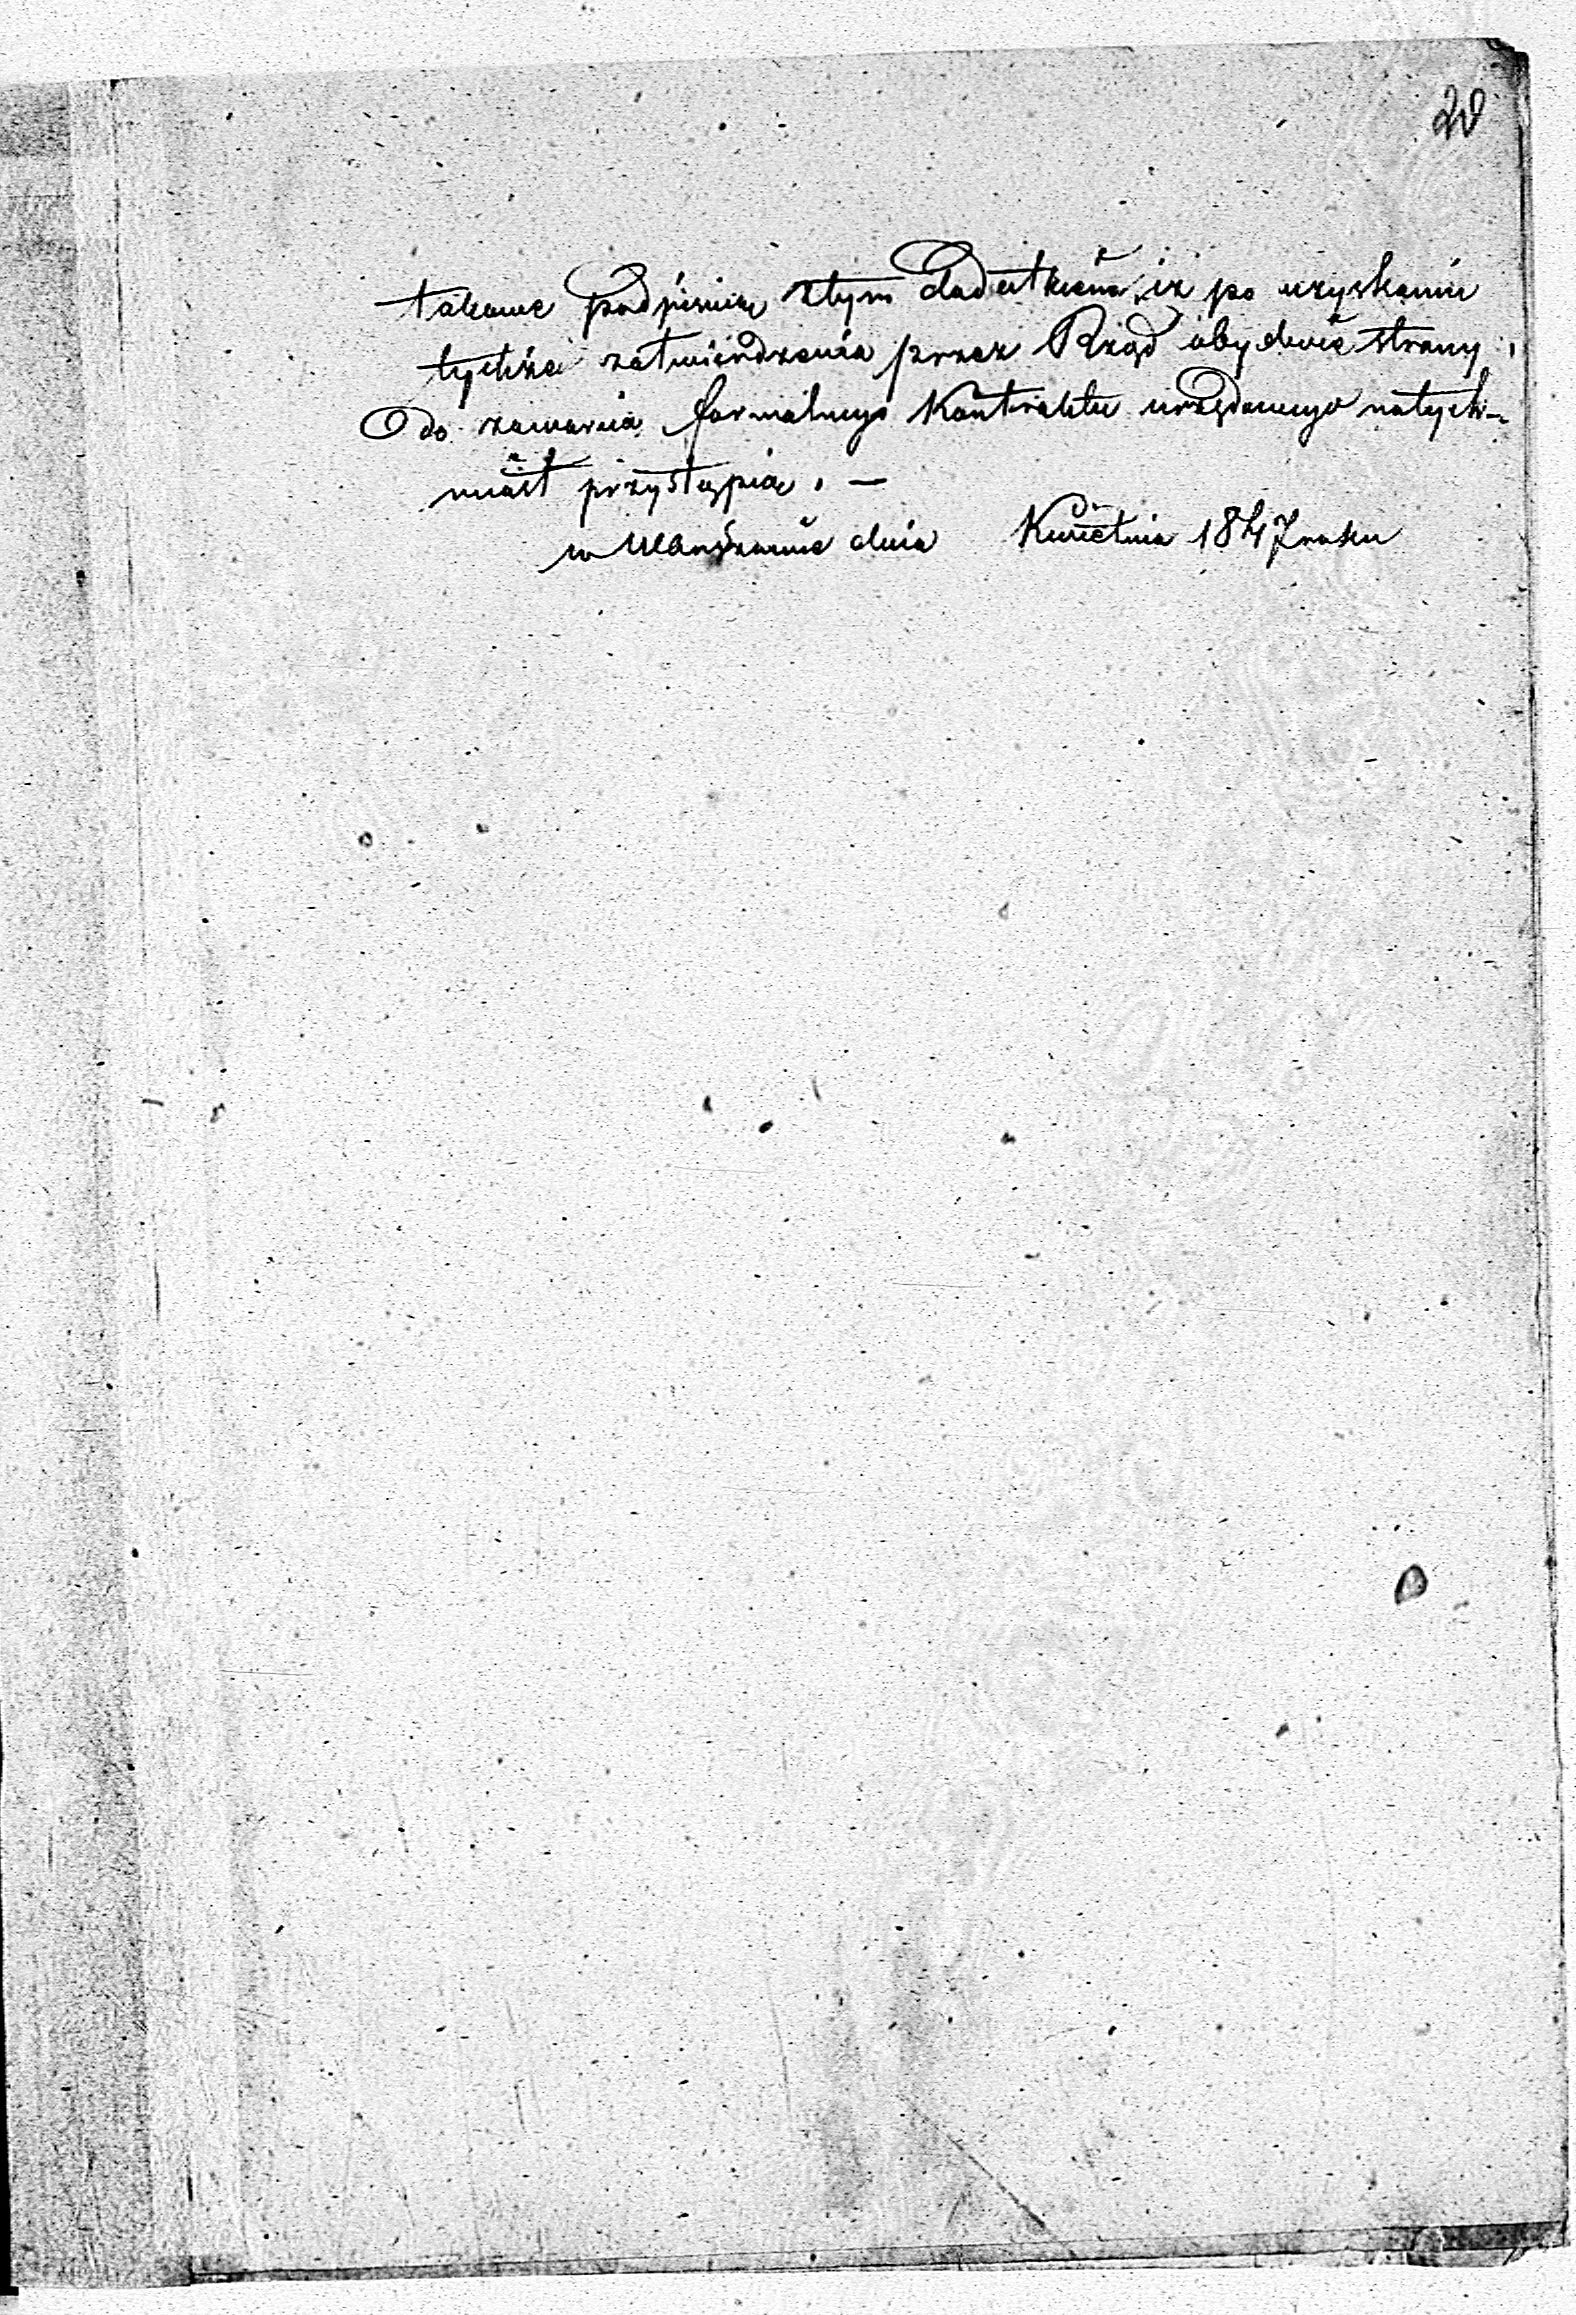 20
takowe podpisują z tym dodatkiem, iż po uzyskaniu
tychże zatwierdzenia przez Rząd obydwie strony,
do zawarcia formalnego Kontraktu urzędowego natych-
miast przystąpią. —
w Warszawie dnia Kwietnia 1847 roku